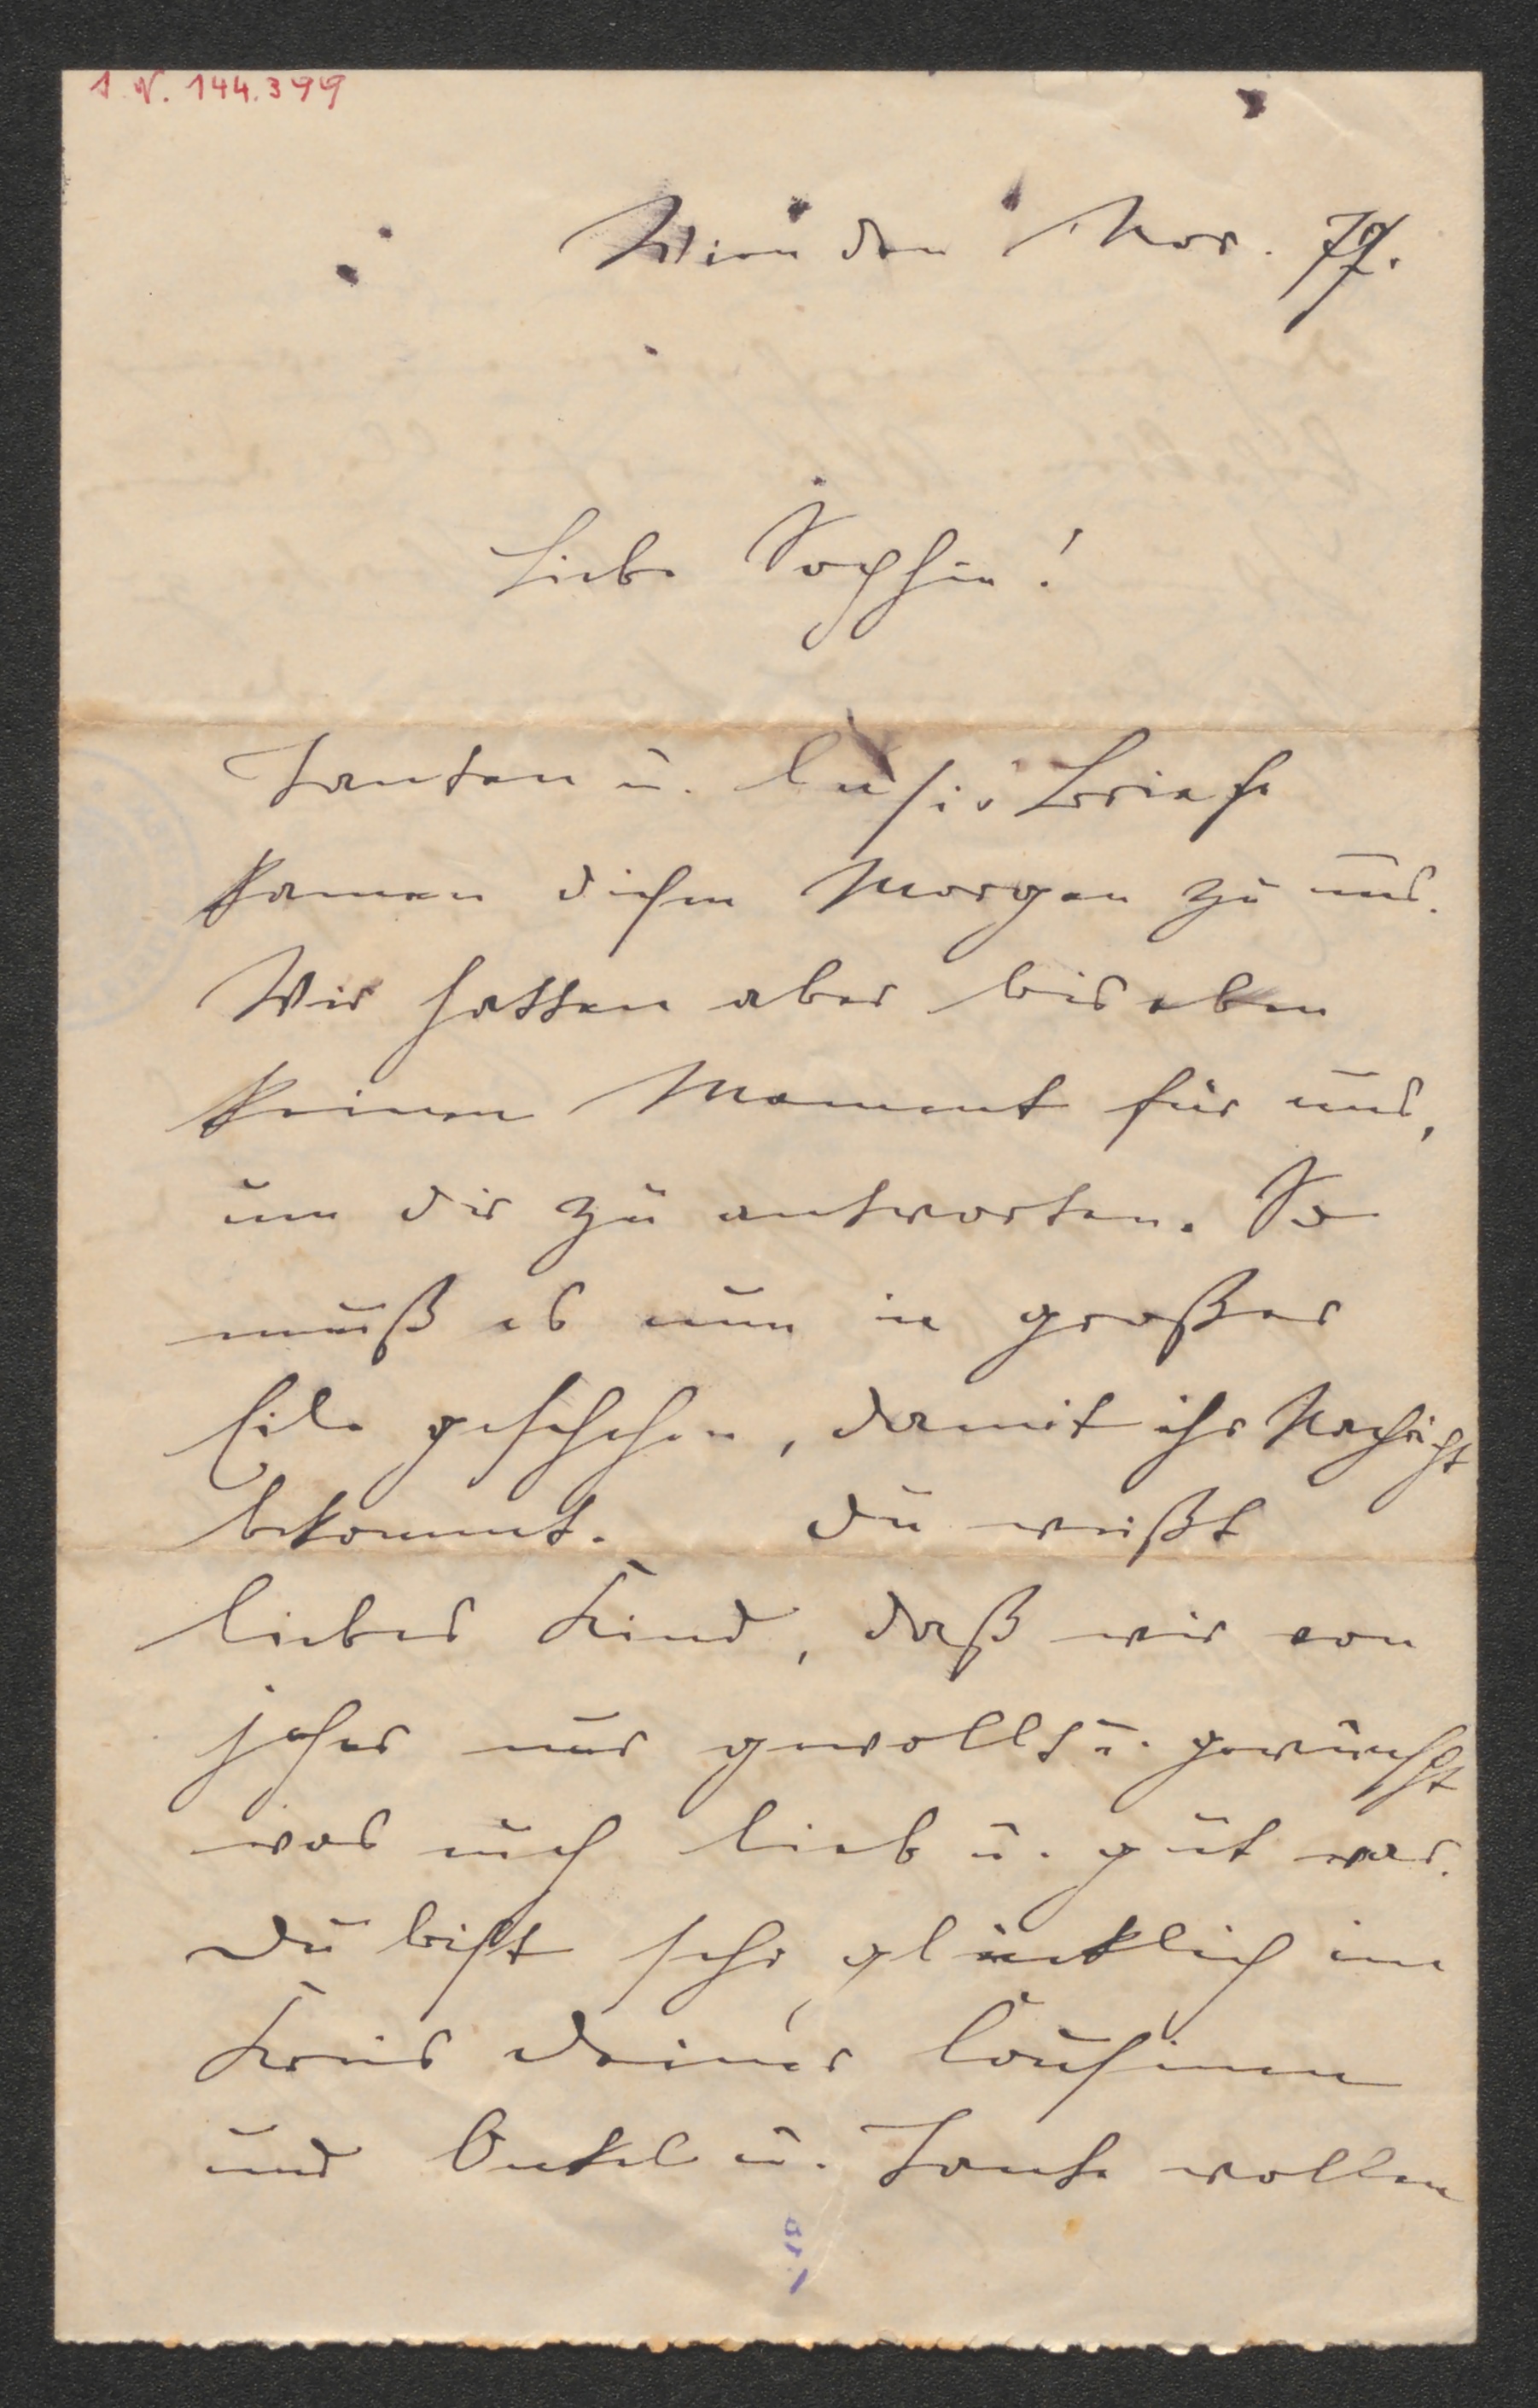 I. N. 144.399
Wien den Nov. 77.
Liebe Sophie!
Tanten u. Briefe
kamen diesen Morgen zu uns.
Wir hatten aber bis eben
keinen Moment für uns,
um dir zu antworten. So
muß es nun in großer
Eile geschehen, damit ihr Nachricht
bekommt. Du weißt
liebes Kind, daß wir von
jeher nur gewollt u. gewünscht
was euch lieb u. gut war.
Du bist sehr glücklich im
Kreis deiner Cousinen
und Onkel u. Tante wollen